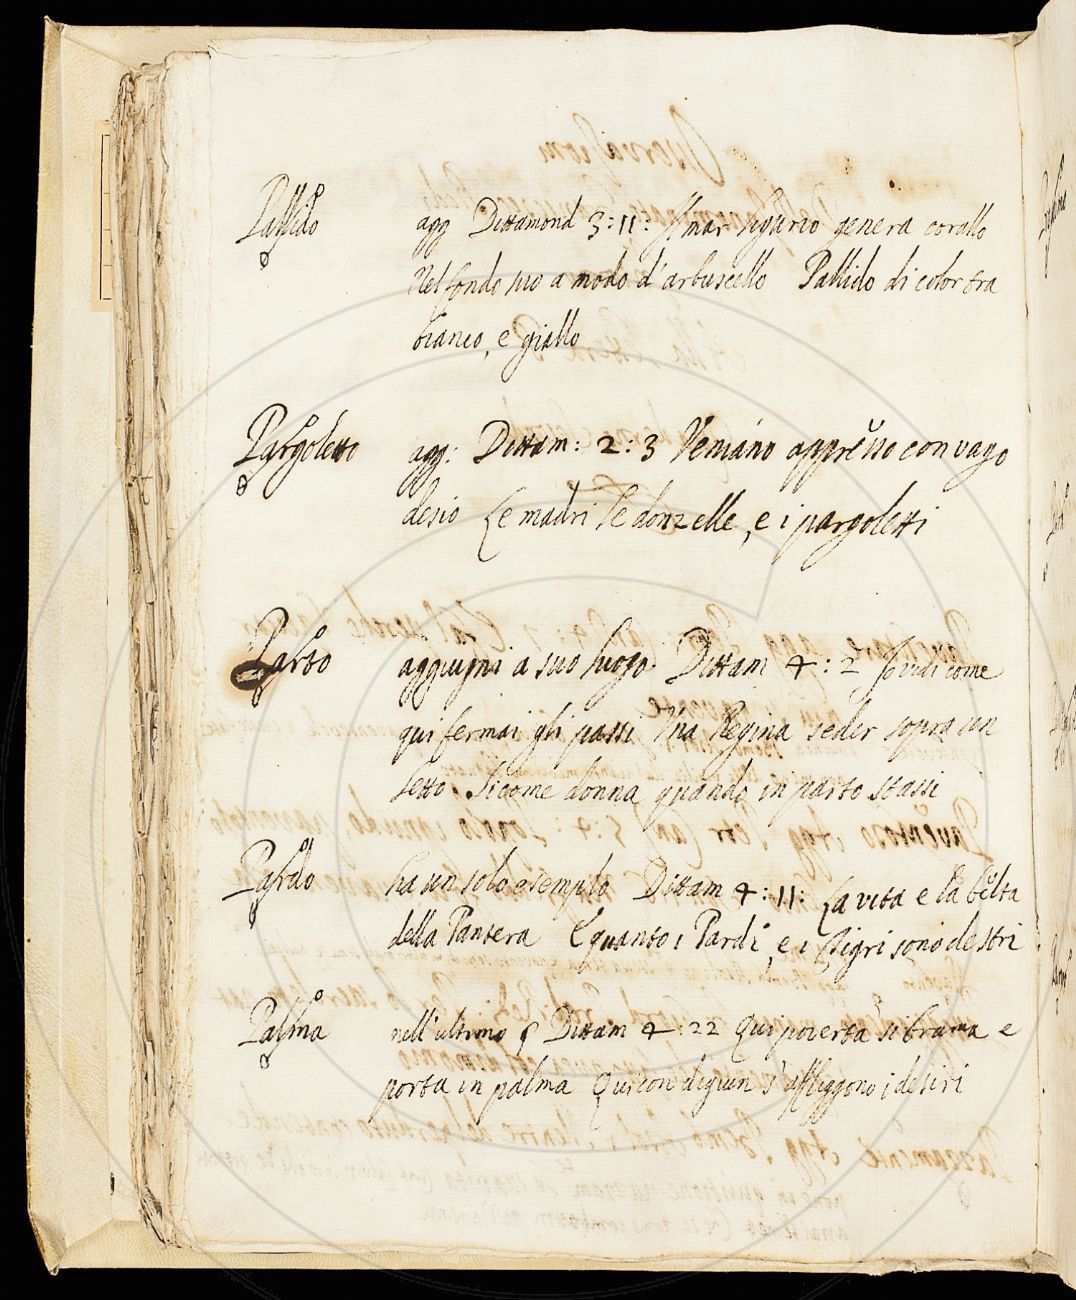 Pallido agg Dittamond 3:11: Il mar ligurio genera corallo
Nel fondo suo a modo d'arbuscello Pallido di color tra
bianco, e giallo
Pargoletto agg: Dittam: 2:3 Veniano appresso con vago
desio Le madri le donzelle, e i pargoletti
Parto aggiugni a suo luogo Dittam 4:2 Io vidi come
qui fermai gli passi Una Regina seder sopra un
letto Sicome donna quando in parto stassi
Pardo ha un solo esempio Dittam 4:11: La vita e la belta
della Pantera E quanto i Pardi, e i Tigri sono destri
Palma nell'ultimo § Dittam 4:22 Qui poverta si brama e
porta in palma Qui con digiun s'affliggono i desiri